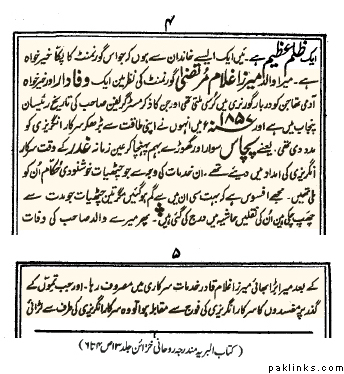 ۴
ایک ظلم عظیم ہے۔ میں ایک ایسے خاندان سے ہوں کہ جو اس گورنمنٹ کا پکا خیر خواہ
ہے۔ میرا والد میرزا غلام مرتضیٰ گورنمنٹ کی نظر میں ایک وفادار اور خیر خواہ
آدمی تھا جن کو دربار گورنری میں کرسی ملتی تھی اور جن کا ذکر مسٹر گریفن صاحب کی تاریخ رئیسان
پنجاب میں ہے اور ۱۸۵۷ء میں انہوں نے اپنی طاقت سے بڑھ کر سرکار انگریزی کو
مدد دی تھی۔ یعنی پچاس سوار اور گھوڑے بہم پہنچا کر عین زمانہ غدر کے وقت سرکار
انگریزی کی امداد میں دیئے تھے۔ ان خدمات کی وجہ سے جو چٹھیات خوشنودی حکام ان کو
ملی تھیں۔ مجھے افسوس ہے کہ بہت سی ان میں سے گم ہو گئیں مگر تین چٹھیات جو مدت سے
چھپ چکی ہیں ان کی نقلیں حاشیہ میں درج کی گئی ہیں۔ پھر میرے والد صاحب کی وفات
۵
کے بعد میرا بڑا بھائی میرزا غلام قادر خدمات سرکاری میں مصروف رہا۔ اور جب تموں کے
گذر پر مفسدوں کا سرکار انگریزی کی فوج سے مقابلہ ہوا تو وہ سرکار انگریزی کی طرف سے لڑائی
(کتاب البریہ مندرجہ روحانی خزائن جلد ۱۳ ص ۴ تا ۶)
paklinks.com